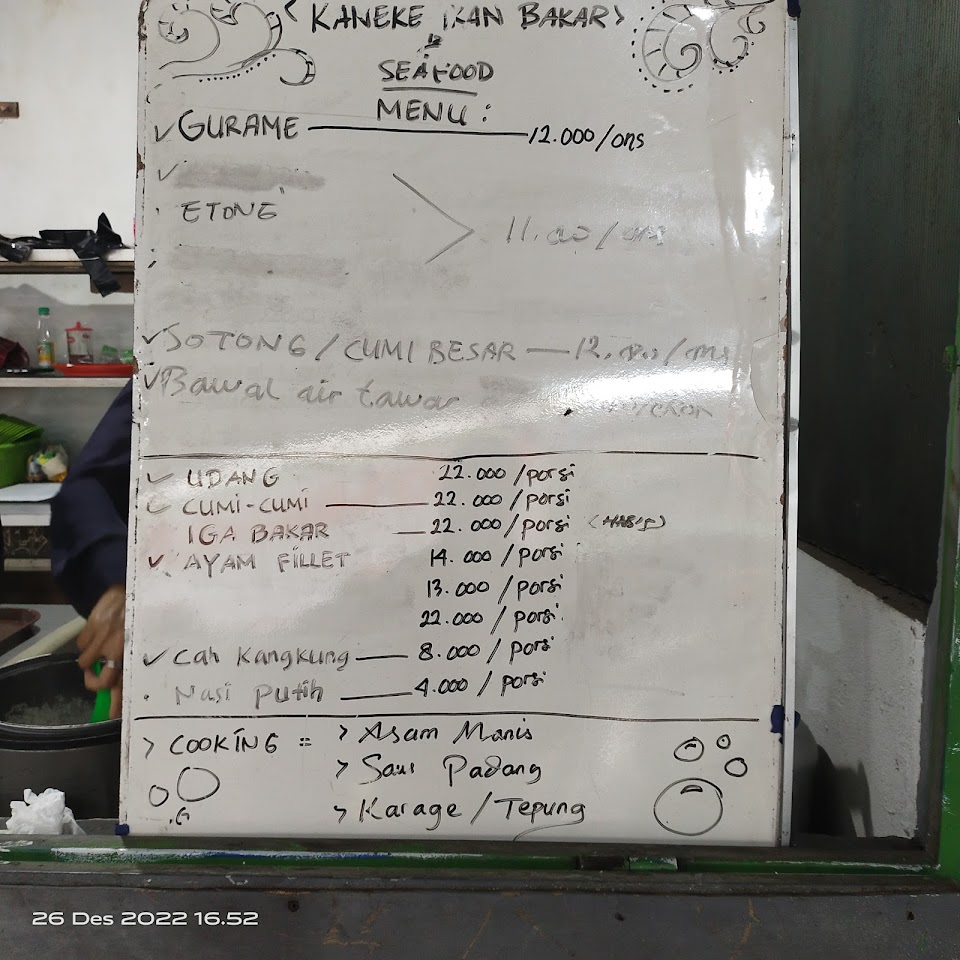 < KANEKE IKAN BAKAR >
&
SEAFOOD
MENU :
✓ GURAME — 12.000/ons
✓
• ETONE > 11.000/ons
✓ SOTONG / CUMI BESAR — 12.000/ons
✓ Bawal air tawar
✓ UDANG 22.000/porsi
✓ CUMI-CUMI — 22.000/porsi
IGA BAKAR — 22.000/porsi (HABIS)
✓ AYAM FILLET 14.000/porsi
13.000/porsi
22.000/porsi
✓ Cah Kangkung — 8.000/porsi
• Nasi Putih — 4.000/porsi
> COOKING = > Asam Manis
> Saus Padang
> Karage / Tepung
26 Des 2022 16.52